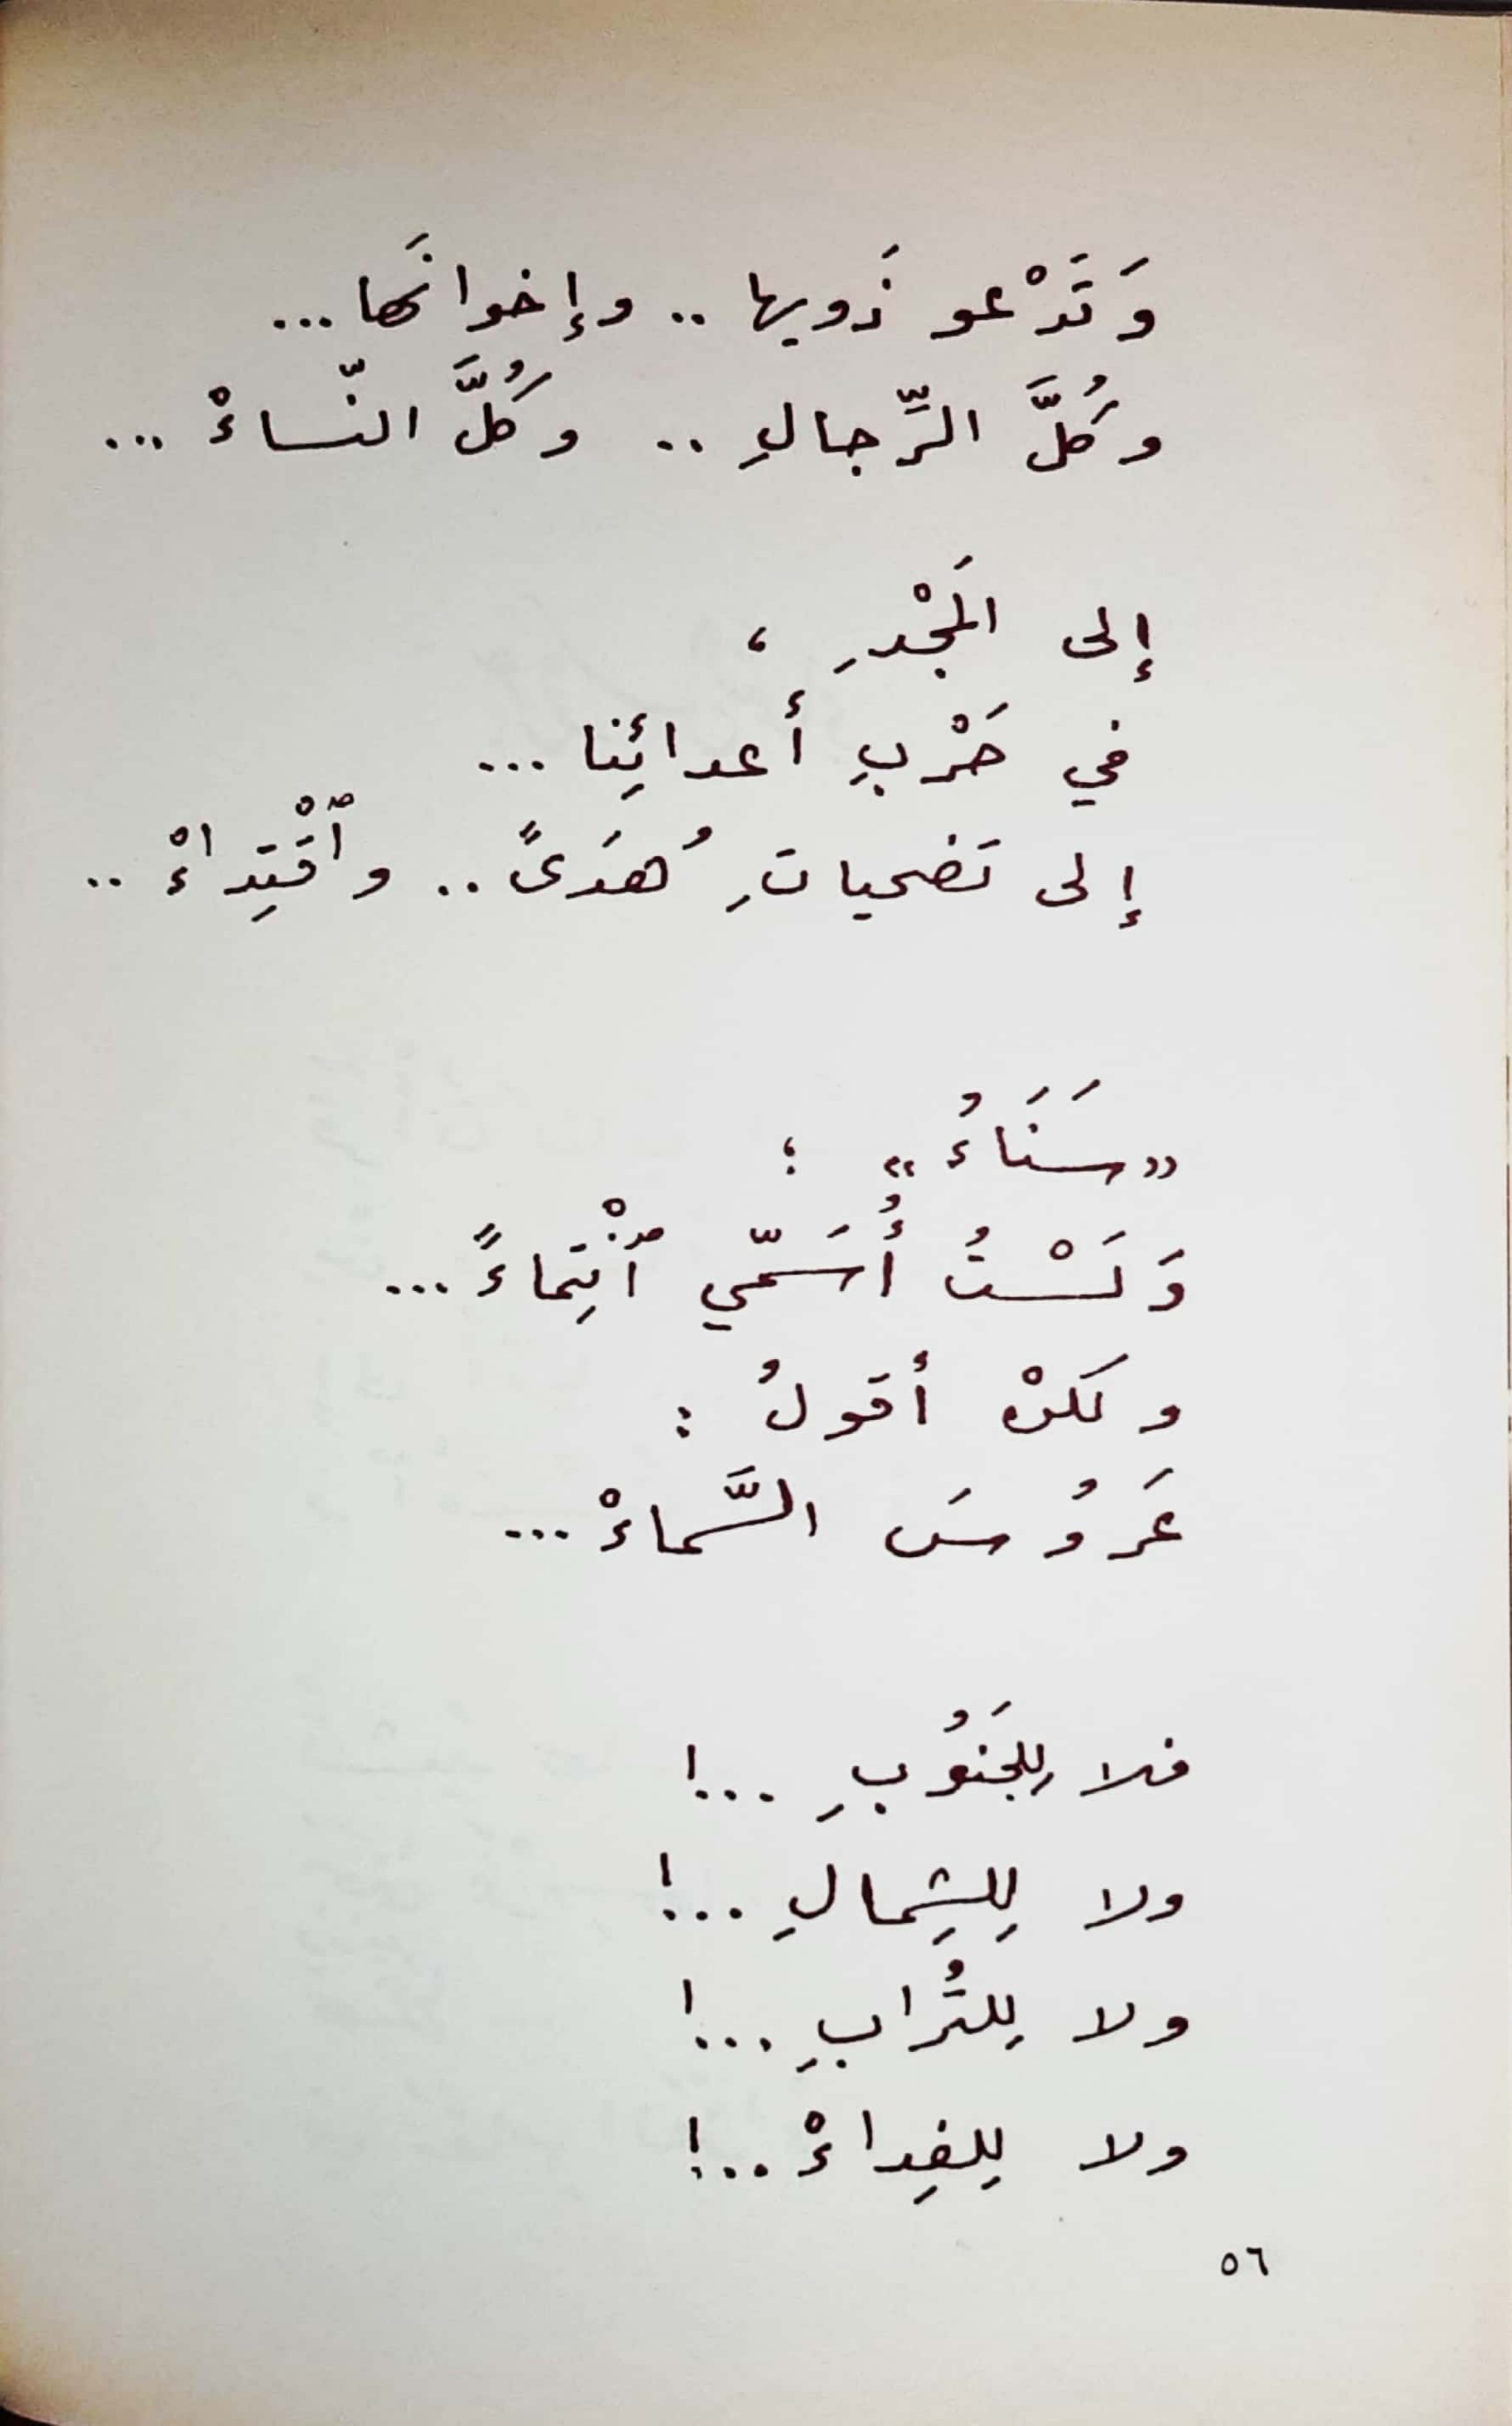 وَتَدْعو ذَويها .. وإخوانَها ...
وكُلَّ الرِّجالِ .. وكُلَّ النّساءْ ...
إلى المَجْدِ ،
في حَرْبِ أعدائِنا ...
إلى تَضحياتِ هُدَىً .. وٱقْتِداءْ ..
«سَنَاءُ» ؛
وَلَسْتُ أُسَمّي ٱنْتِماءً ...
ولكنْ أقولُ :
عَرُوسَ السَّماءْ ...
فلا لِلجَنُوبِ ...!
ولا لِلشِمالِ ...!
ولا لِلتُرابِ ...!
ولا لِلفِداءْ ...!
٥٦